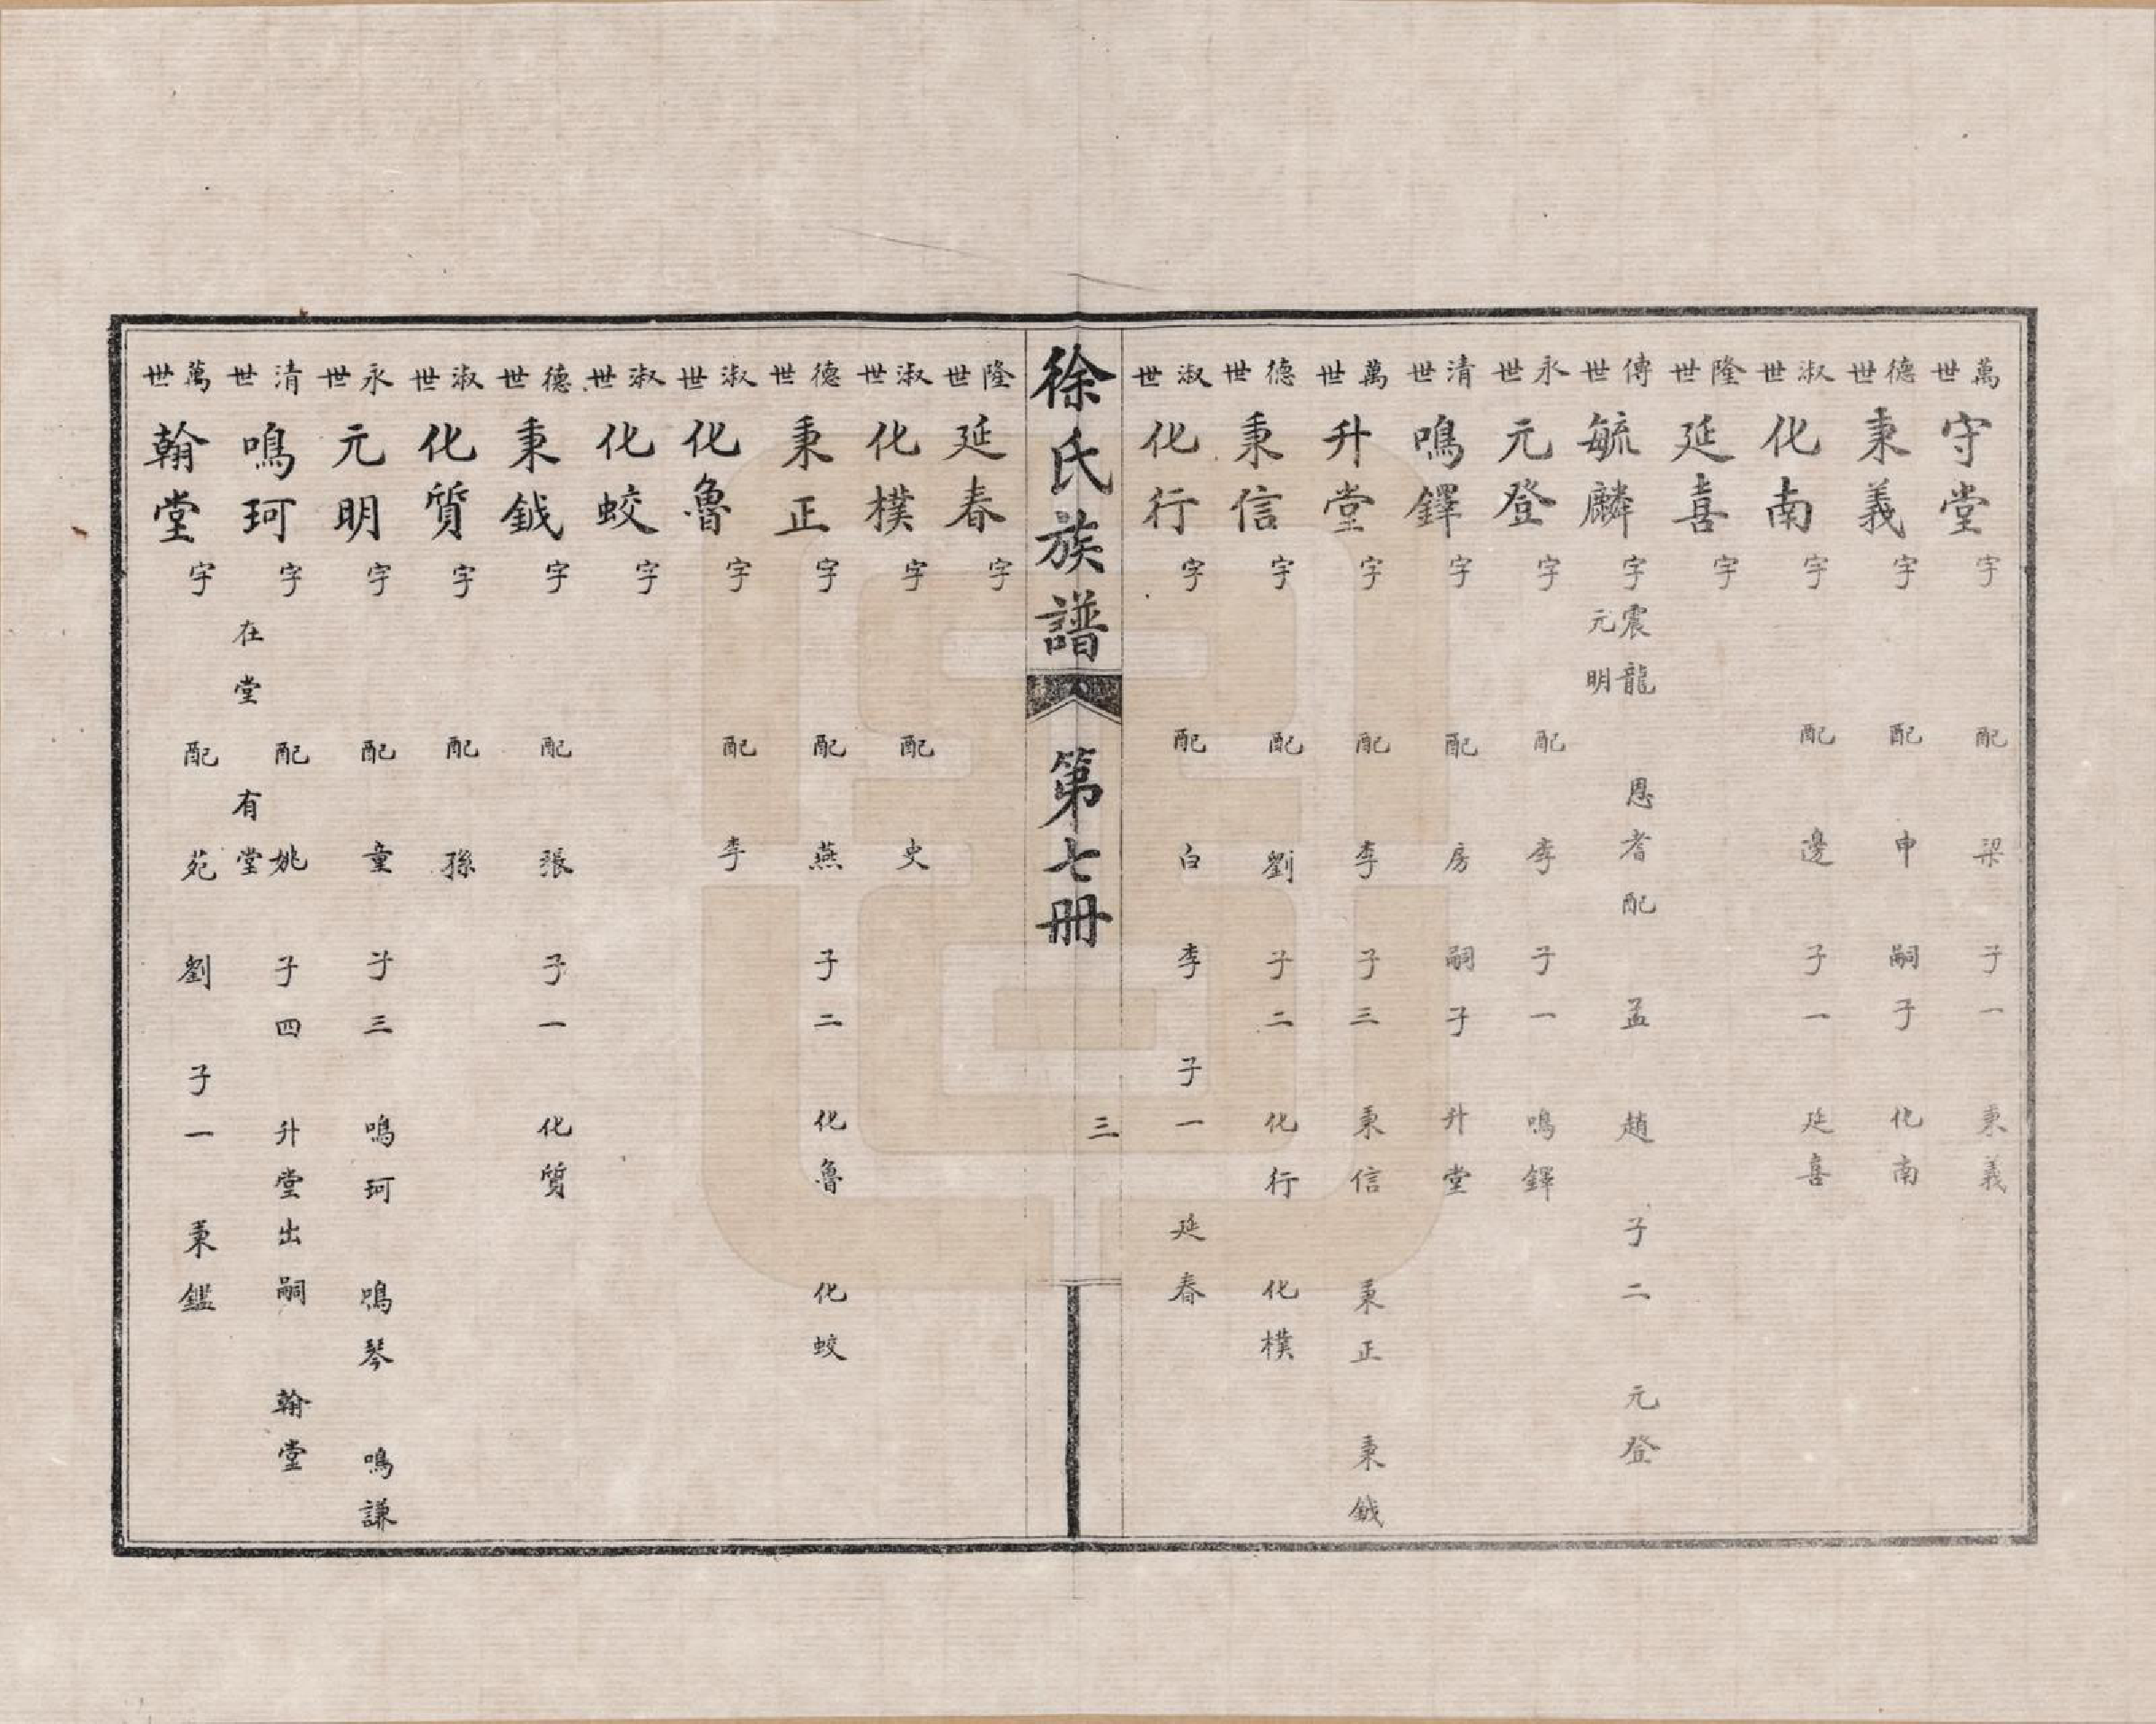 萬世 守堂 字 配 梁 子一 秉義
德世 秉義 字 配 申 嗣子 化南
淑世 化南 字 配 邊 子一 延喜
隆世 延喜 字
傳世 毓麟 字 震龍 元明 恩耆 配 孟 趙 子二 元登
永世 元登 字 配 李 子一 鳴鐸
清世 鳴鐸 字 配 房 嗣子 升堂
萬世 升堂 字 配 李 子三 秉信 秉正 秉鉞
德世 秉信 字 配 劉 子二 化行 化樸
淑世 化行 字 配 白 李 子一 延春
徐氏族譜 第七冊 三
隆世 延春 字
淑世 化樸 字 配 史
德世 秉正 字 配 燕 子二 化魯 化蛟
淑世 化魯 字 配 李
淑世 化蛟 字
德世 秉鉞 字 配 張 子一 化質
淑世 化質 字 配 孫
永世 元明 字 配 童 子三 鳴珂 鳴琴 鳴謙
清世 鳴珂 字 配 姚 子四 升堂出嗣 翰堂
在堂 有堂
萬世 翰堂 字 配 苑 劉 子一 秉鑑